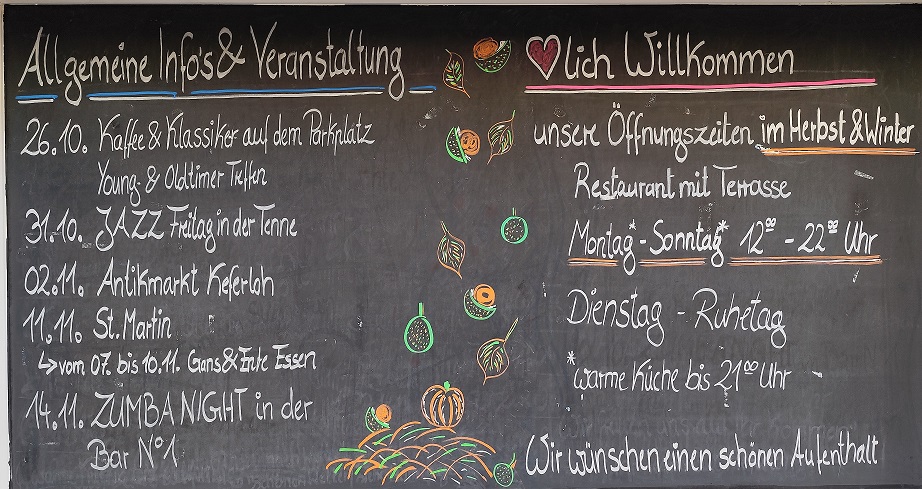 Allgemeine Info's & Veranstaltung
26.10. Kaffee & Klassiker auf dem Parkplatz
Young- & Oldtimer Treffen
31.10. JAZZ Freitag in der Tenne
02.11. Antikmarkt Keferloh
11.11. St. Martin
↳ vom 07. bis 10.11. Gans & Ente Essen
14.11. ZUMBA NIGHT in der
Bar N°1
♥lich Willkommen
unsere Öffnungszeiten im Herbst & Winter
Restaurant mit Terrasse
Montag* - Sonntag* 12⁰⁰ - 22⁰⁰ Uhr
Dienstag - Ruhetag
*warme Küche bis 21⁰⁰ Uhr
Wir wünschen einen schönen Aufenthalt